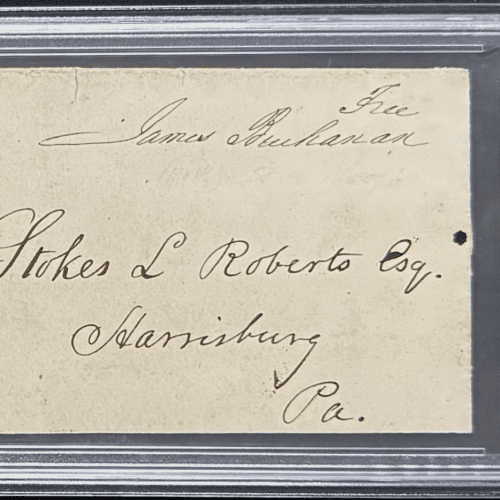 Free
James Buchanan
Stokes L Roberts Esq.
Harrisburg
Pa.